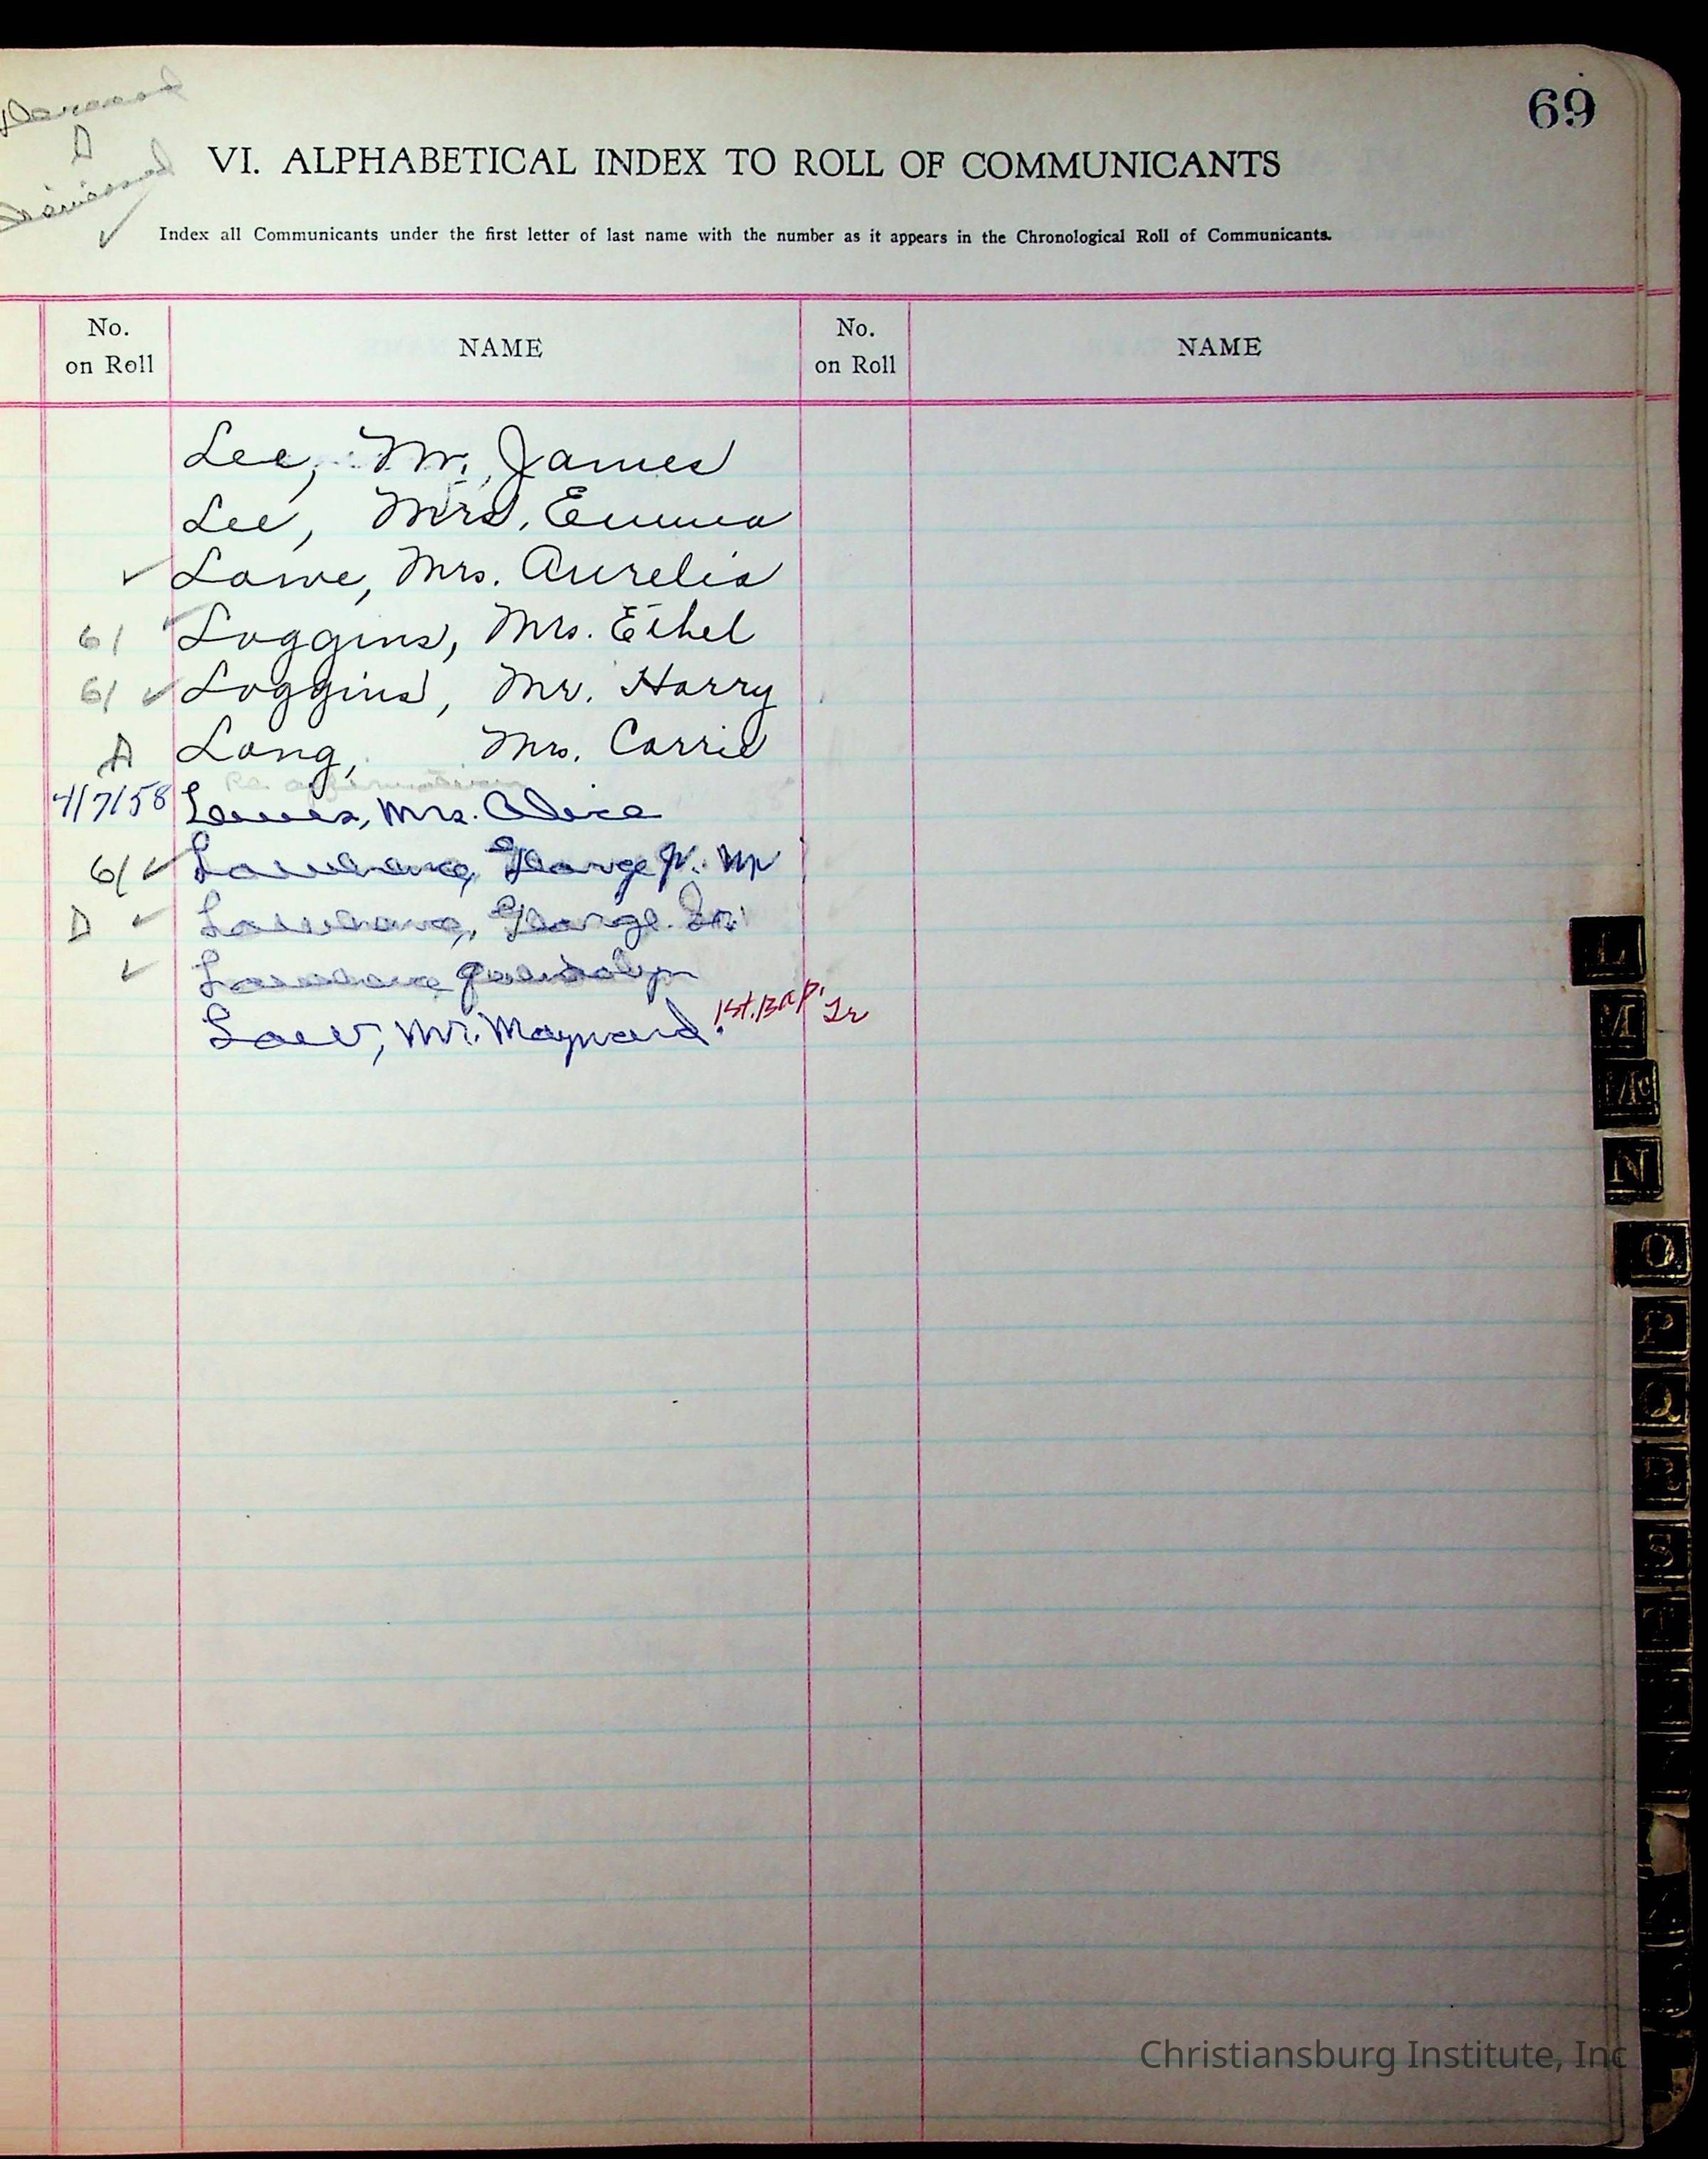 69
Deceased
D
Dismissed
✓
VI. ALPHABETICAL INDEX TO ROLL OF COMMUNICANTS
Index all Communicants under the first letter of last name with the number as it appears in the Chronological Roll of Communicants.
No. on Roll NAME No. on Roll NAME
Lee, Mr. James
Lee, Mrs. Emma
✓ Lowe, Mrs. Aurelia
61 ✓ Loggins, Mrs. Ethel
61 ✓ Loggins, Mr. Harry
D Long, Mrs. Carrie
Re affirmation
4/7/58 Lewis, Mrs. Alice
61 ✓ George Jr. Mr
D ✓ George Sr.
✓ Gwendolyn
Law, Mr. Maynard. 1st. Bap. Tr
L
M
Mc
N
O
P
Q
R
S
T
Christiansburg Institute, Inc